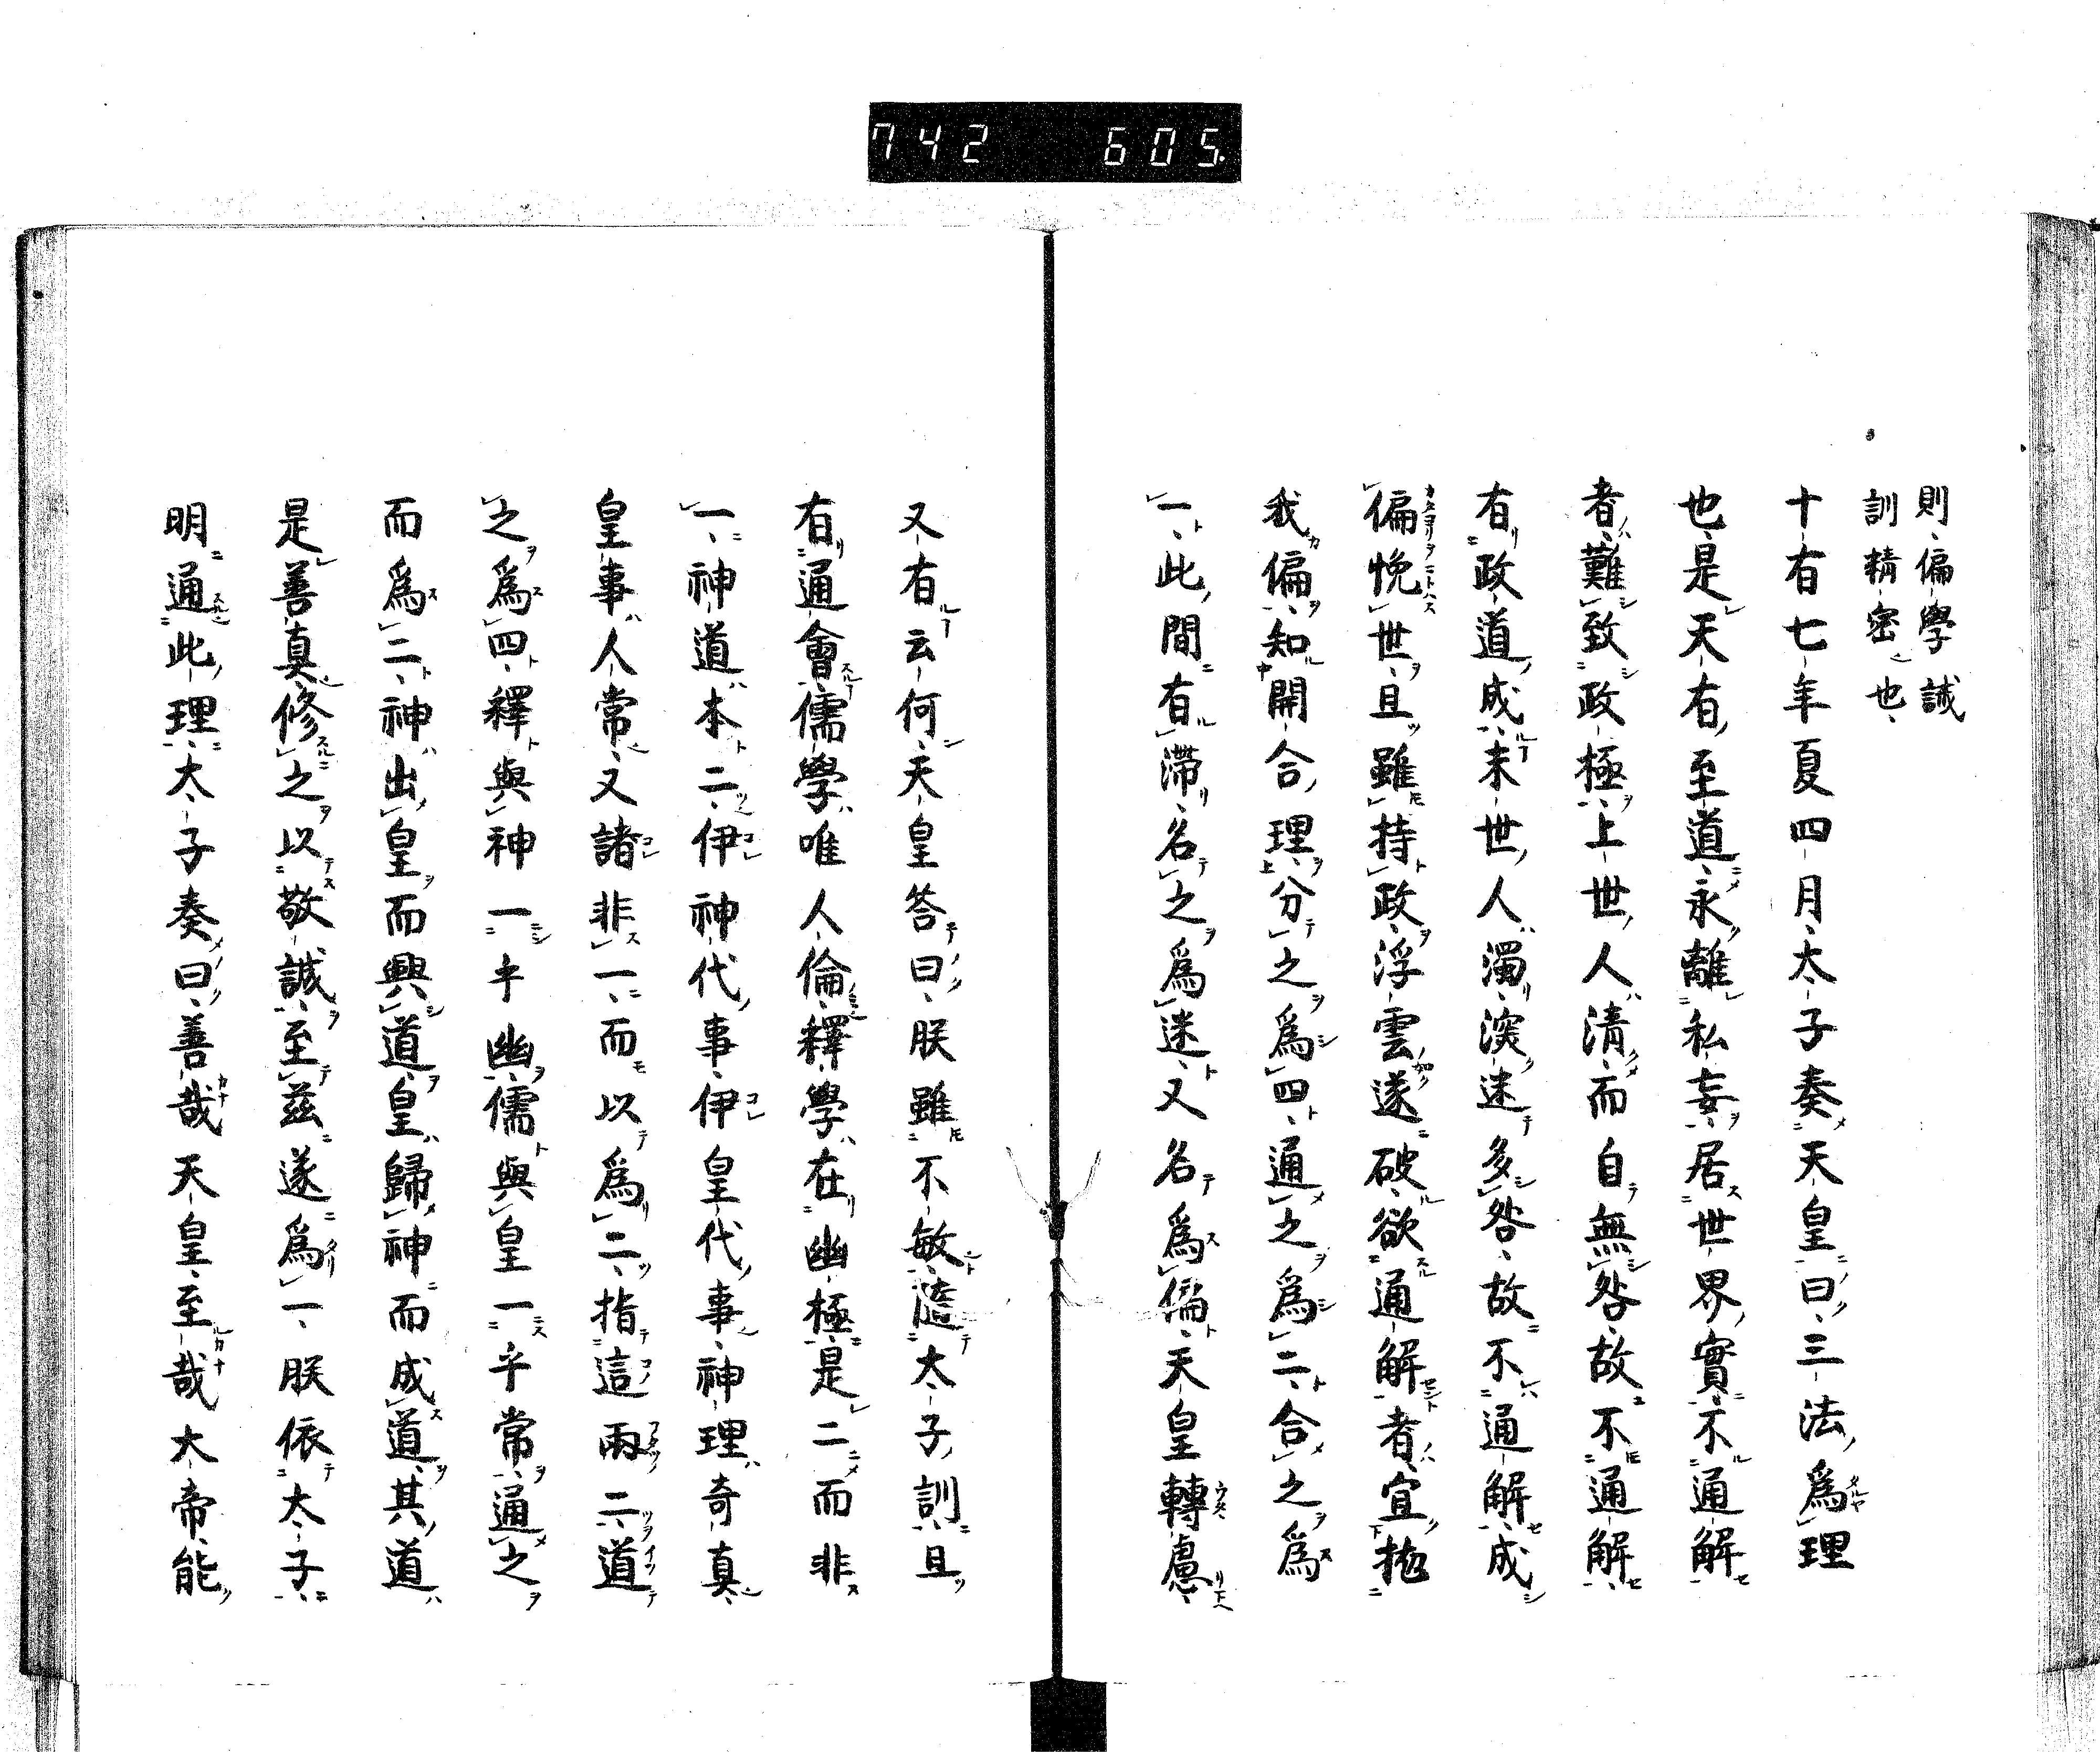 742 605
則偏學誠
訓精密也
十有七年夏四月太子奏天皇曰三法爲理
也是天有至道永離私妄居世界實不通解
者難致政極上世人清而自無咎故不通解
有政道成末世人濁深迷多咎故不通解成
偏悗世且雖持政浮雲遂破欲通解者宜
我偏知開合理分之爲四通之爲二合之爲
一此間有滯名之爲迷又名爲偏天皇轉慮
又有云何天皇答曰朕雖不敏隨太子訓且
有通會儒學唯人倫釋學在幽極是二而非
一神道本二伊神代事伊皇代事神理奇真
皇事人常又諸非一而以爲二指這兩二道
之爲四釋與神一乎幽儒與皇一乎常通之
而爲二神出皇而興道皇歸神而成道其道
是善真修之以敬誠至茲遂爲一朕依太子
明通此理太子奏曰善哉天皇至哉大帝能